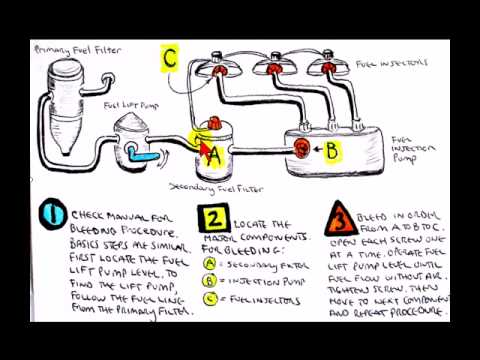 Primary Fuel Filter
C
Fuel Injectors
Fuel Lift Pump
A
B
Fuel Injection Pump
Secondary Fuel Filter
1
CHECK MANUAL FOR
BLEEDING PROCEDURE.
BASICS STEPS ARE SIMILAR.
FIRST LOCATE THE FUEL
LIFT PUMP LEVEL. TO
FIND THE LIFT PUMP,
FOLLOW THE FUEL LINE
FROM THE PRIMARY FILTER.
2
LOCATE THE
MAJOR COMPONENTS
FOR BLEEDING:
A = SECONDARY FILTOR
B = INJECTION PUMP
C = FUEL INJECTORS
3
BLEED IN ORDER
FROM A TO B TO C.
OPEN EACH SCREW ONE
AT A TIME. OPERATE FUEL
LIFT PUMP LEVEL UNTIL
FUEL FLOW WITHOUT AIR.
TIGHTEN SCREW. THEN
MOVE TO NEXT COMPONENT
AND REPEAT PROCEDURE.